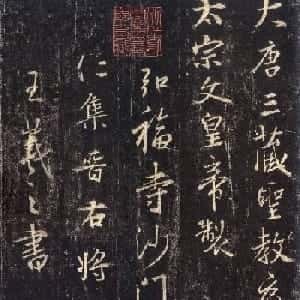 大唐三藏聖教序
太宗文皇帝製
弘福寺沙門
仁集晉右將
王羲之書